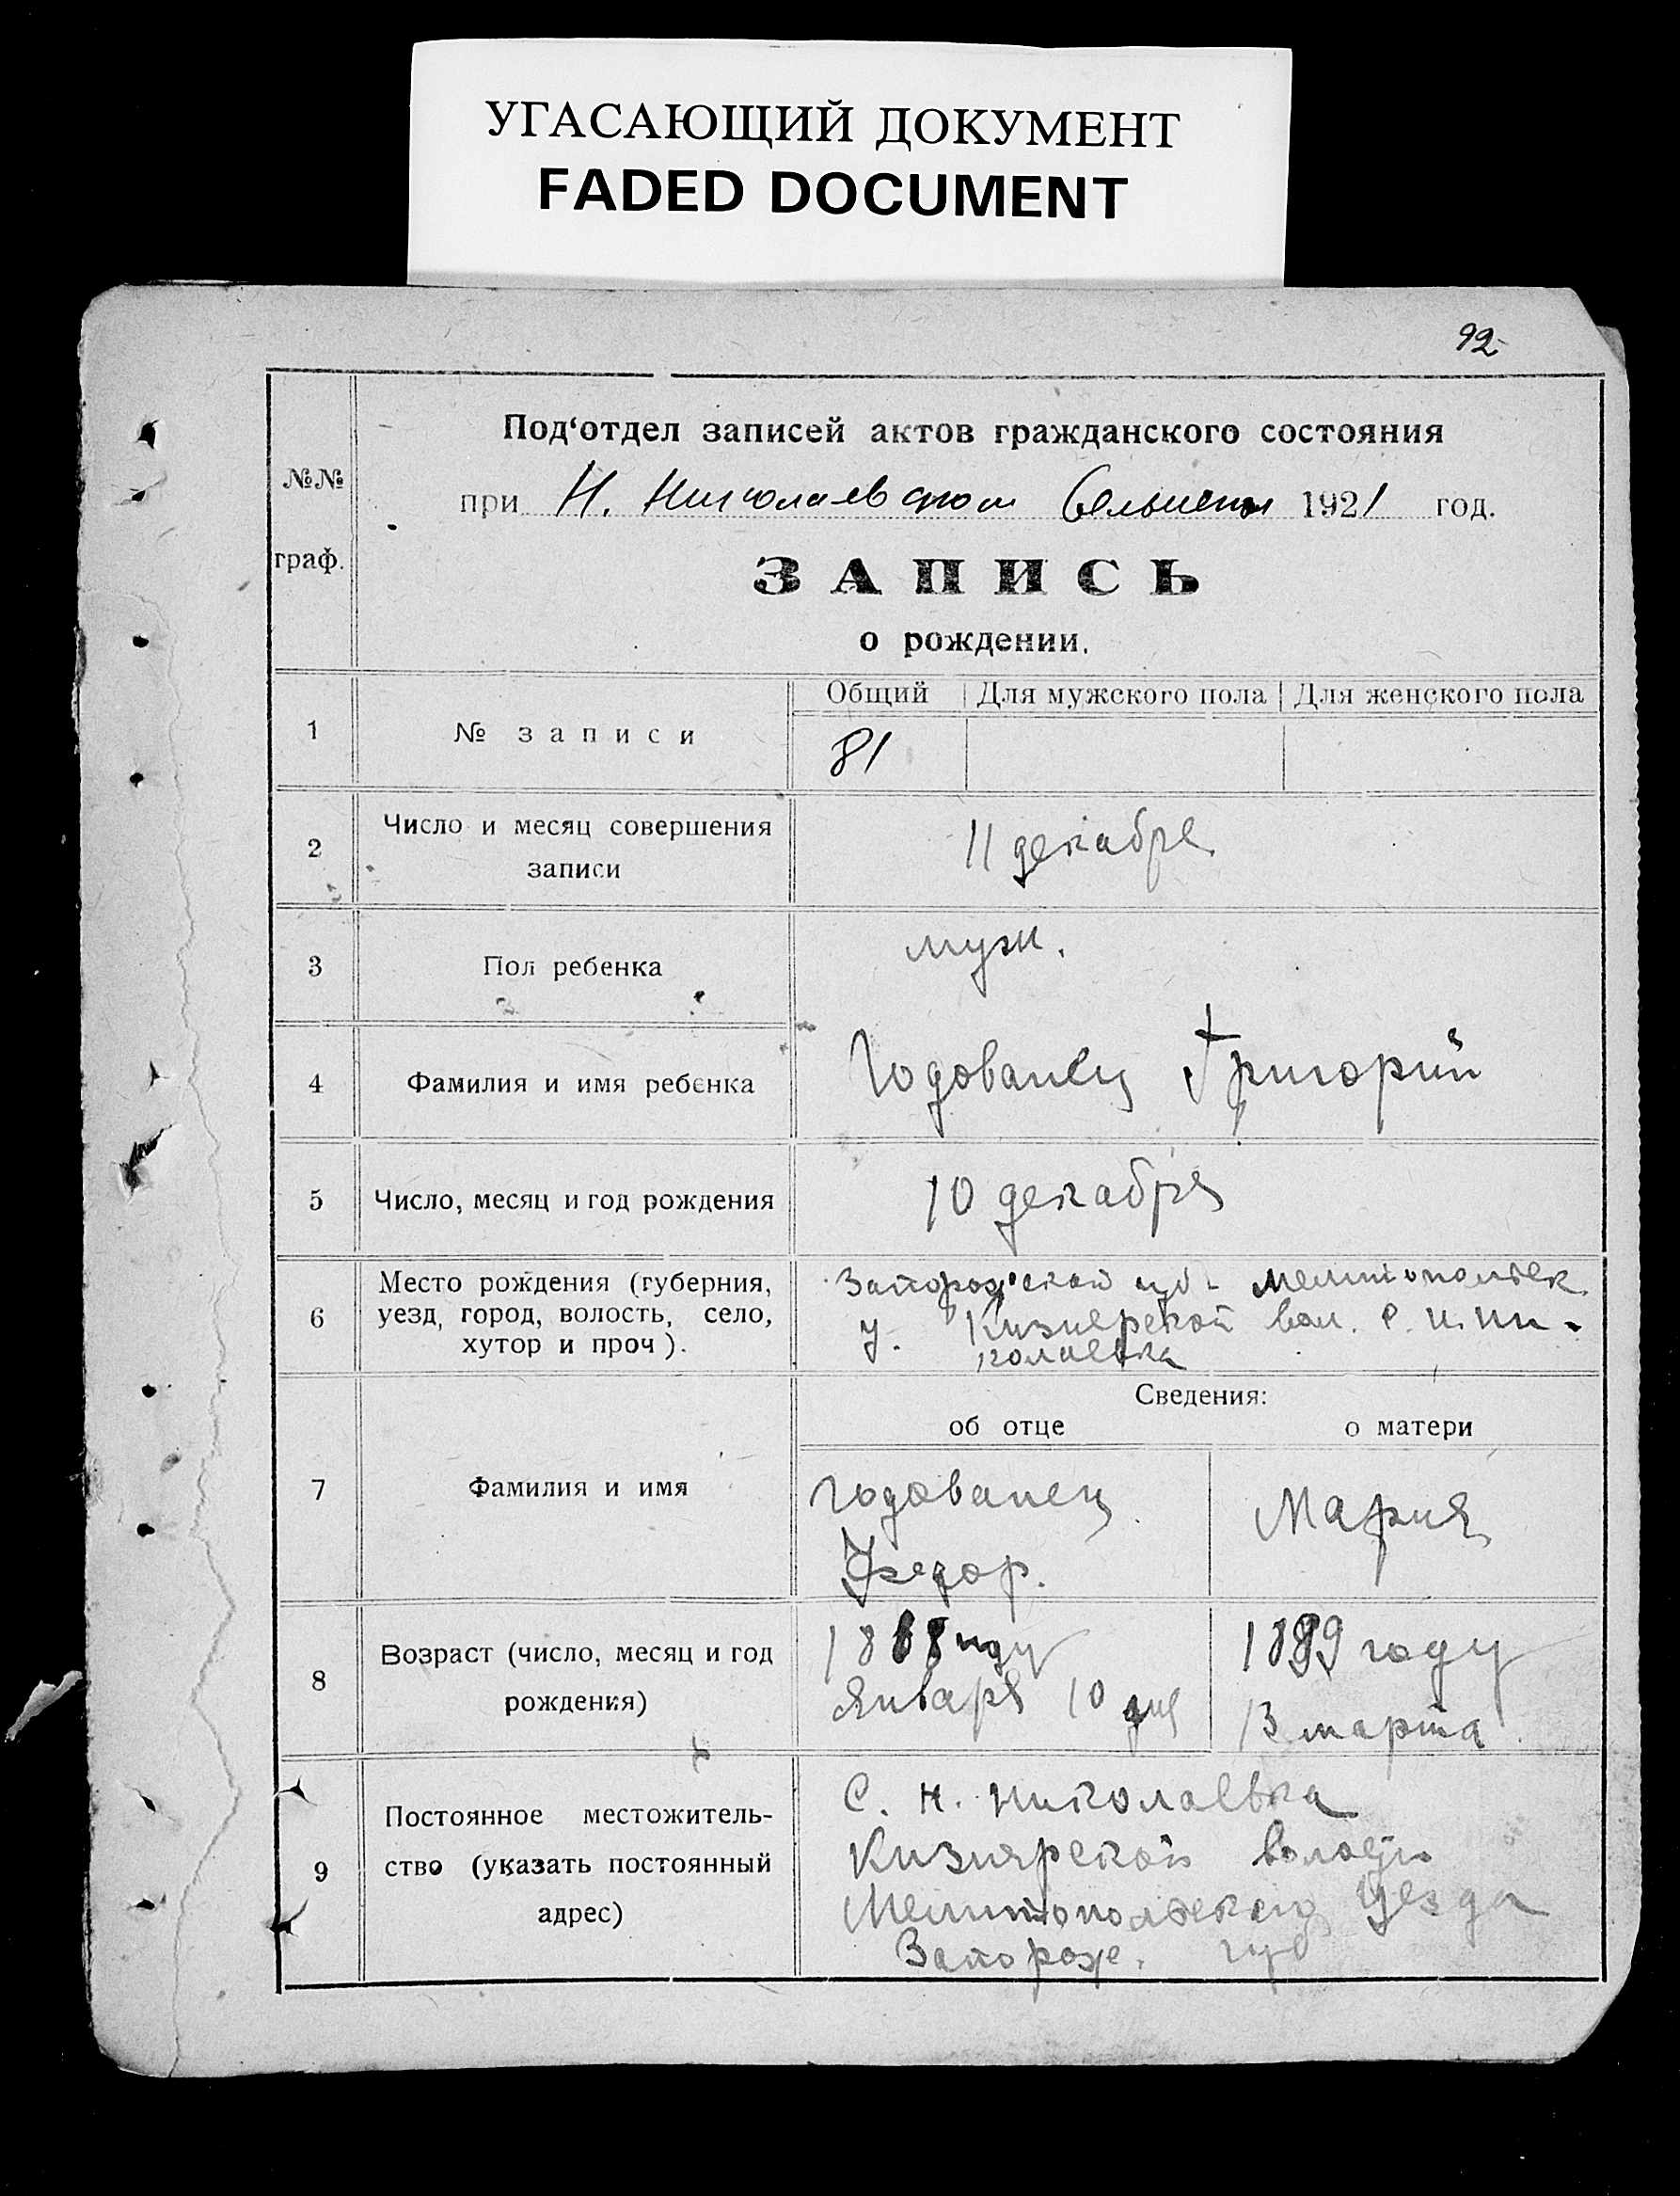 УГАСАЮЩИЙ ДОКУМЕНТ
FADED DOCUMENT
92
№№
граф.
Под‘отдел записей актов гражданского состояния
при Н. Николаевском 1921 год.
ЗАПИСЬ
о рождении.
Общий Для мужского пола Для женского пола
1 № записи 81
2 Число и месяц совершения
записи
11 декабря
3 Пол ребенка муж.
4 Фамилия и имя ребенка Годованец Григорий
5 Число, месяц и год рождения 10 декабря
6 Место рождения (губерния,
уезд, город, волость, село,
хутор и проч).
Запорожской губ. Мелитопольск.
у. Кизиярской вол. с. Н. Ни-
колаевка
Сведения:
об отце о матери
7 Фамилия и имя
Годованец
Федор.
Мария
8 Возраст (число, месяц и год
рождения)
году
января 10 дня
1889 году
13 марта
9 Постоянное местожитель-
ство (указать постоянный
адрес)
С. Н. Николаевка
Кизиярской волости
Мелитопольского Уезда
Запорож. губ